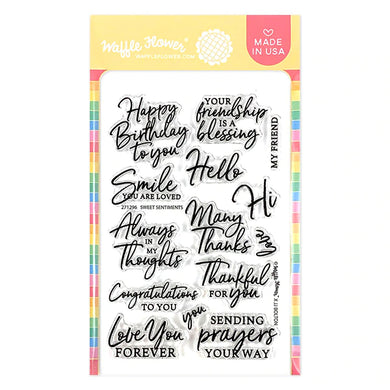 Waffle Flower
WAFFLEFLOWER.COM
MADE IN
USA
Happy
Birthday
to you
YOUR
friendship
IS A
blessing
MY FRIEND
Hello
Smile
YOU ARE LOVED
271296 SWEET SENTIMENTS
Hi
Always
IN MY
Thoughts
Many
Thanks
Thankful
FOR you
Congratulations
TO YOU
you
Love You
FOREVER
SENDING
prayers
YOUR WAY